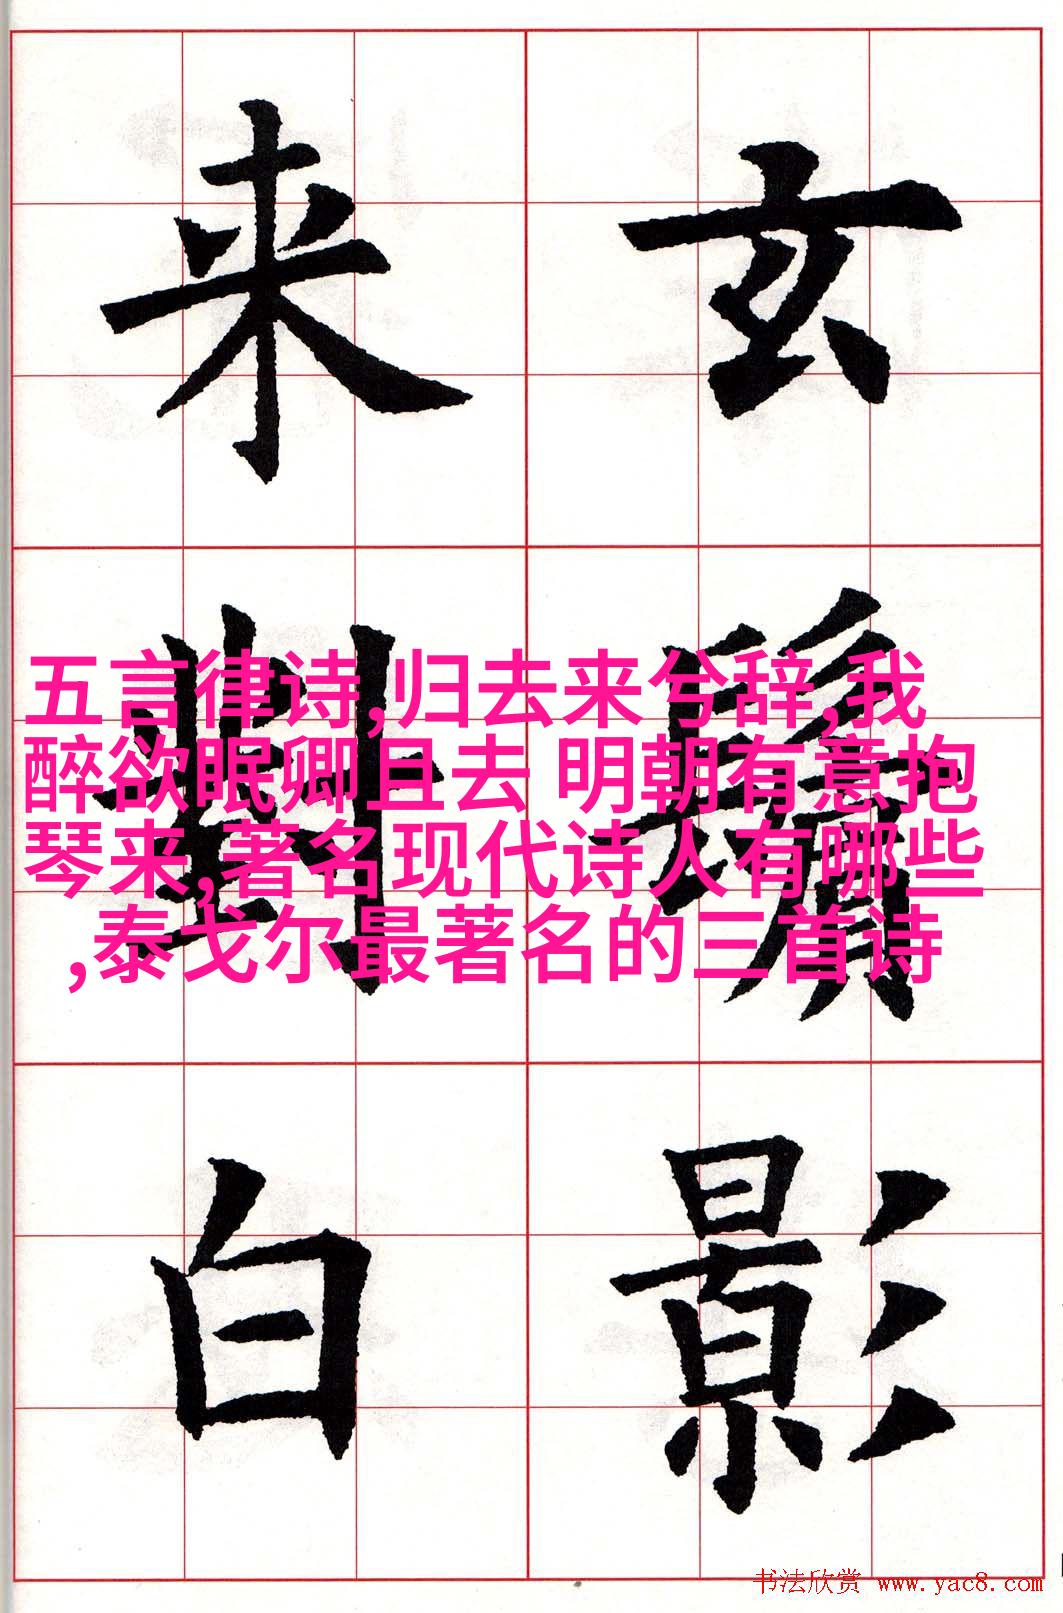 玄鬢影
来對白
五言律诗,归去来兮辞,我
醉欲眠卿且去 明朝有意抱
琴来,著名现代诗人有哪些
,泰戈尔最著名的三首诗
书法欣赏 www.yac8.com